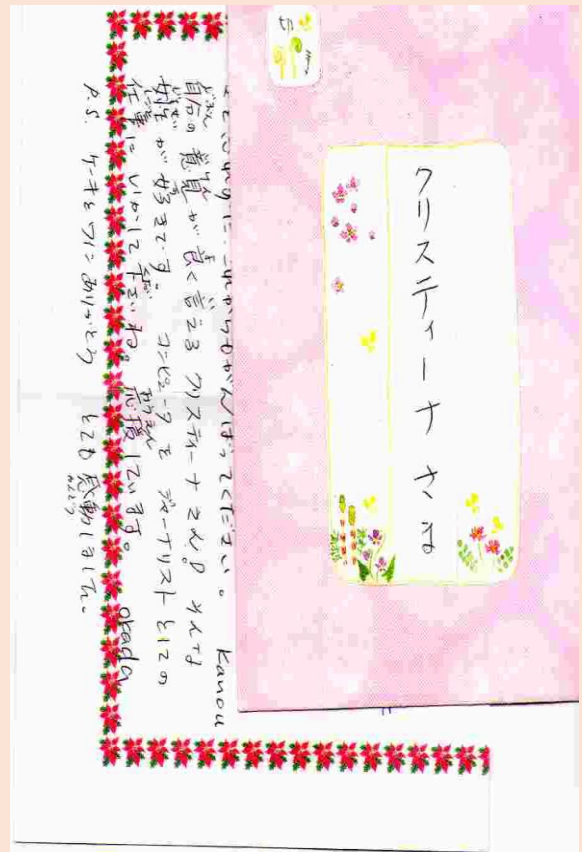 クリスティーナ さま
これからもがんばってください。 Kanou
自分の 意見が 良く 言える クリスティーナさん。 そんな
女性が 好きです。 コンピュータを ジャーナリストとしての
仕事に いかして 下さいね。 応援しています。
okada
P.S. ありがとう とても 感動しました。
かんどう